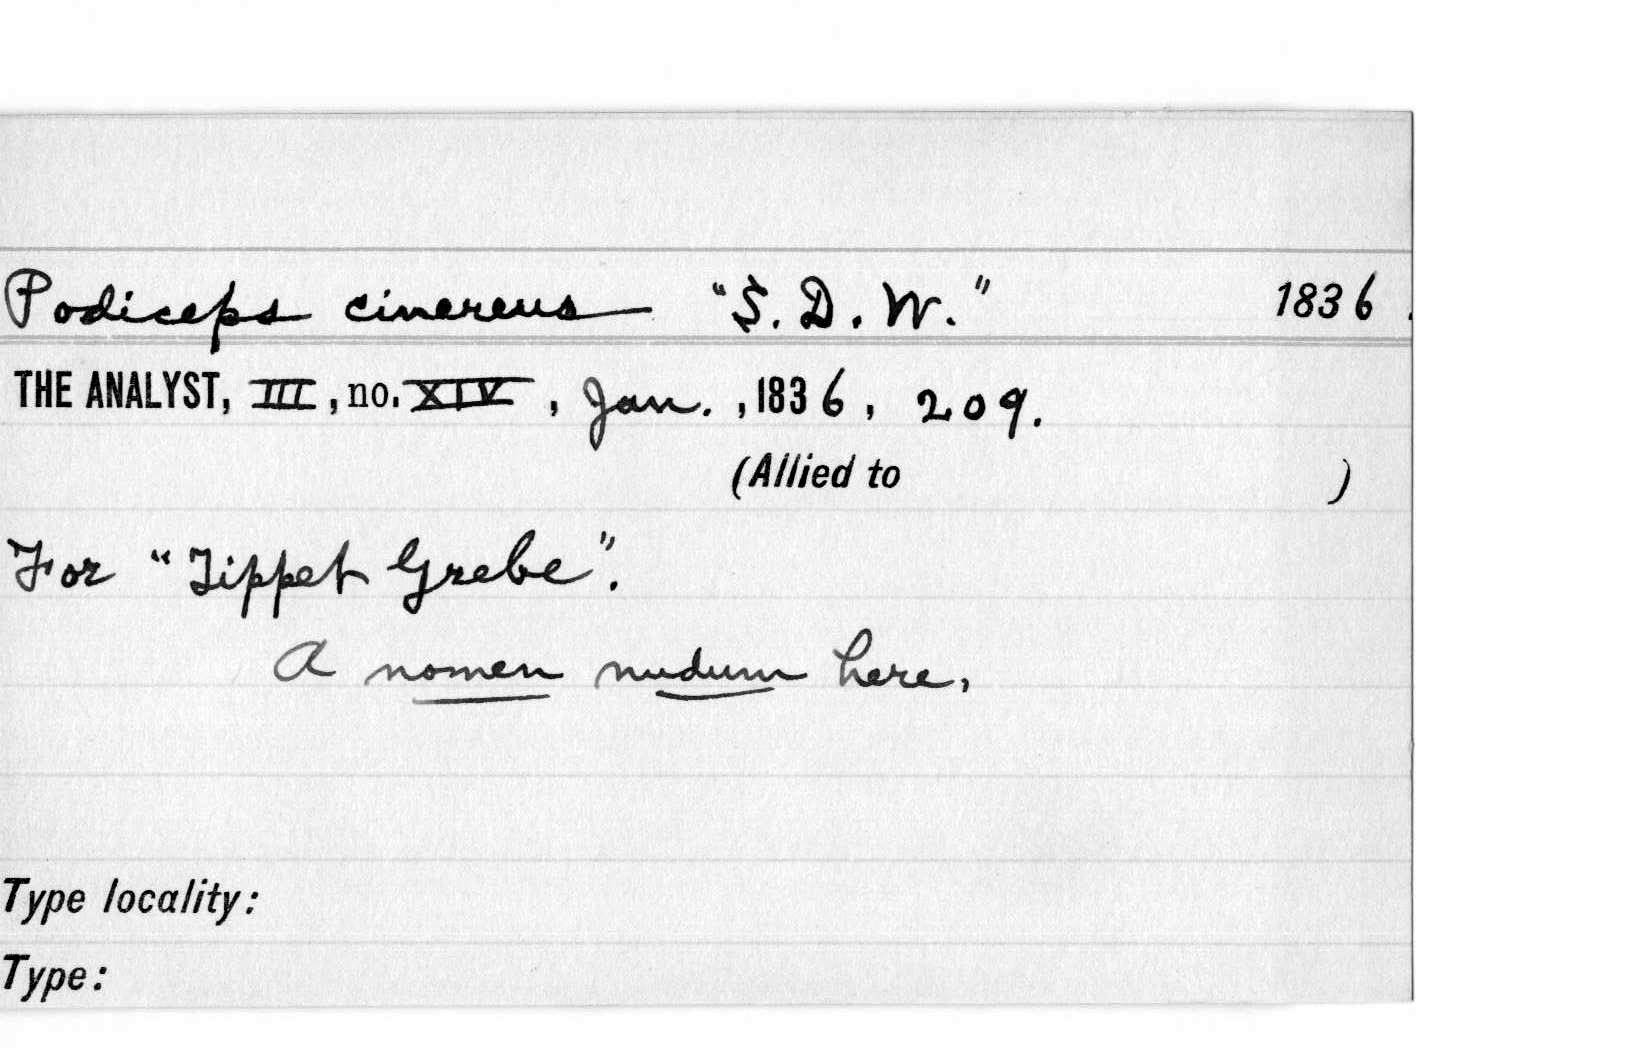 Podiceps cinereus "S. D. W." 1836.
THE ANALYST, III, no. XIV, Jan., 1836, 209.
(Allied to )
For "Tippet Grebe".
A nomen nudum here,
Type locality:
Type: